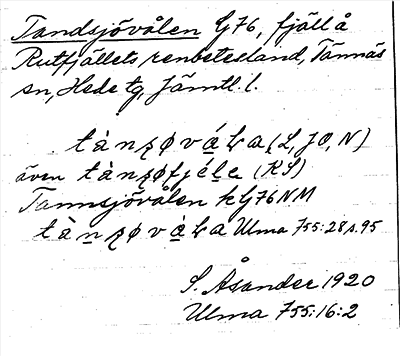 Tandsjövålen G76, fjäll å
Rutfjällets renbetesland, Tännäs
sn, Hede tg, Jämtl. l.
tànʂøvála (L, JO, N)
även tànʂøfjéḷe (KS)
Tannsjövålen k G76NM
tànʂøvàla Ulma 755:28 s. 95
S. Åsander 1920
Ulma 755:16:2